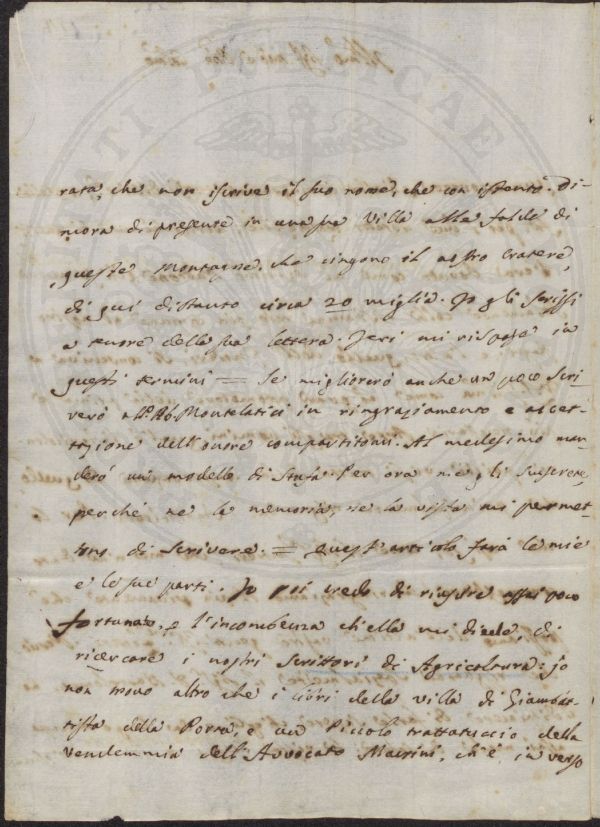 rata, che non iscrive il suo nome, che con istento. Di-
mora di presente in una sua villa alle falde di
queste Montagne, che cingono il nostro Cratere,
di qui distante circa 20 miglia. Io gli scrissi
a tenore della sua lettera. Jeri mi rispose in
questi termini = Se migliorerò anche un poco scri-
verò all'Ab. Montelatici in ringraziamento e accet-
tazione dell'onore compartitomi. Al medesimo man-
derò un modello di Stufa. Per ora me gli
perché né la memoria, né la vista mi permet-
tono di scrivere. = Quest'articolo farà le mie
e le sue parti. Io poi credo di riuscire assai poco
fortunato, e l'incombenza ch'ella mi diede, di
ricercare i nostri Scrittori di Agricoltura: io
non trovo altro che i libri della villa di Giambat-
tista della Porta, e un piccolo trattatuccio della
Vendemmia dell'Avvocato Macrini, ch'è in verso